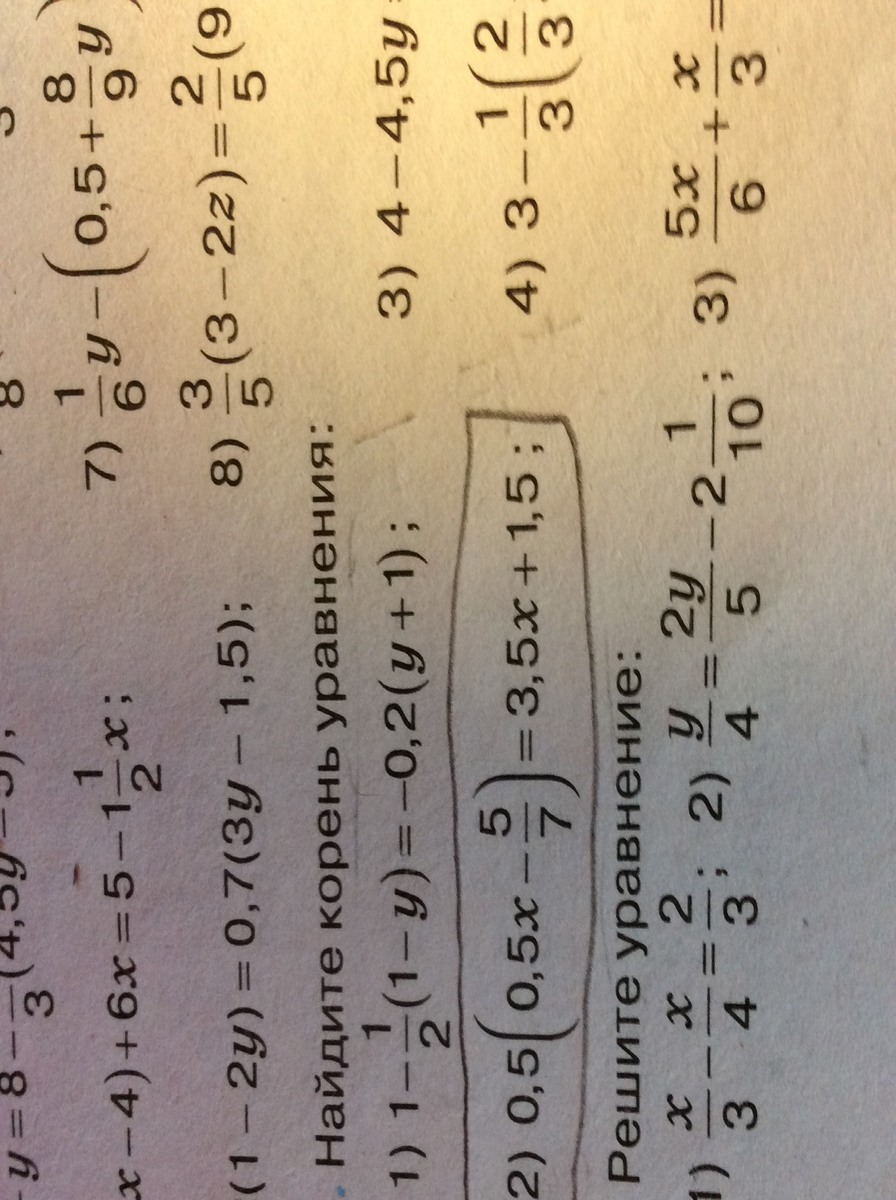 y = 8 − 1/3(4,5y − 5);
x − 4) + 6x = 5 − 1 1/2 x;
7) 1/6 y − (0,5 + 8/9 y)
(1 − 2y) = 0,7(3y − 1,5);
8) 3/5(3 − 2z) = 2/5(9
Найдите корень уравнения:
1) 1 − 1/2(1 − y) = −0,2(y + 1);
3) 4 − 4,5y
2) 0,5(0,5x − 5/7) = 3,5x + 1,5;
4) 3 − 1/3(2/3
Решите уравнение:
1) x/3 − x/4 = 2/3; 2) y/4 = 2y/5 − 2 1/10; 3) 5x/6 + x/3 =